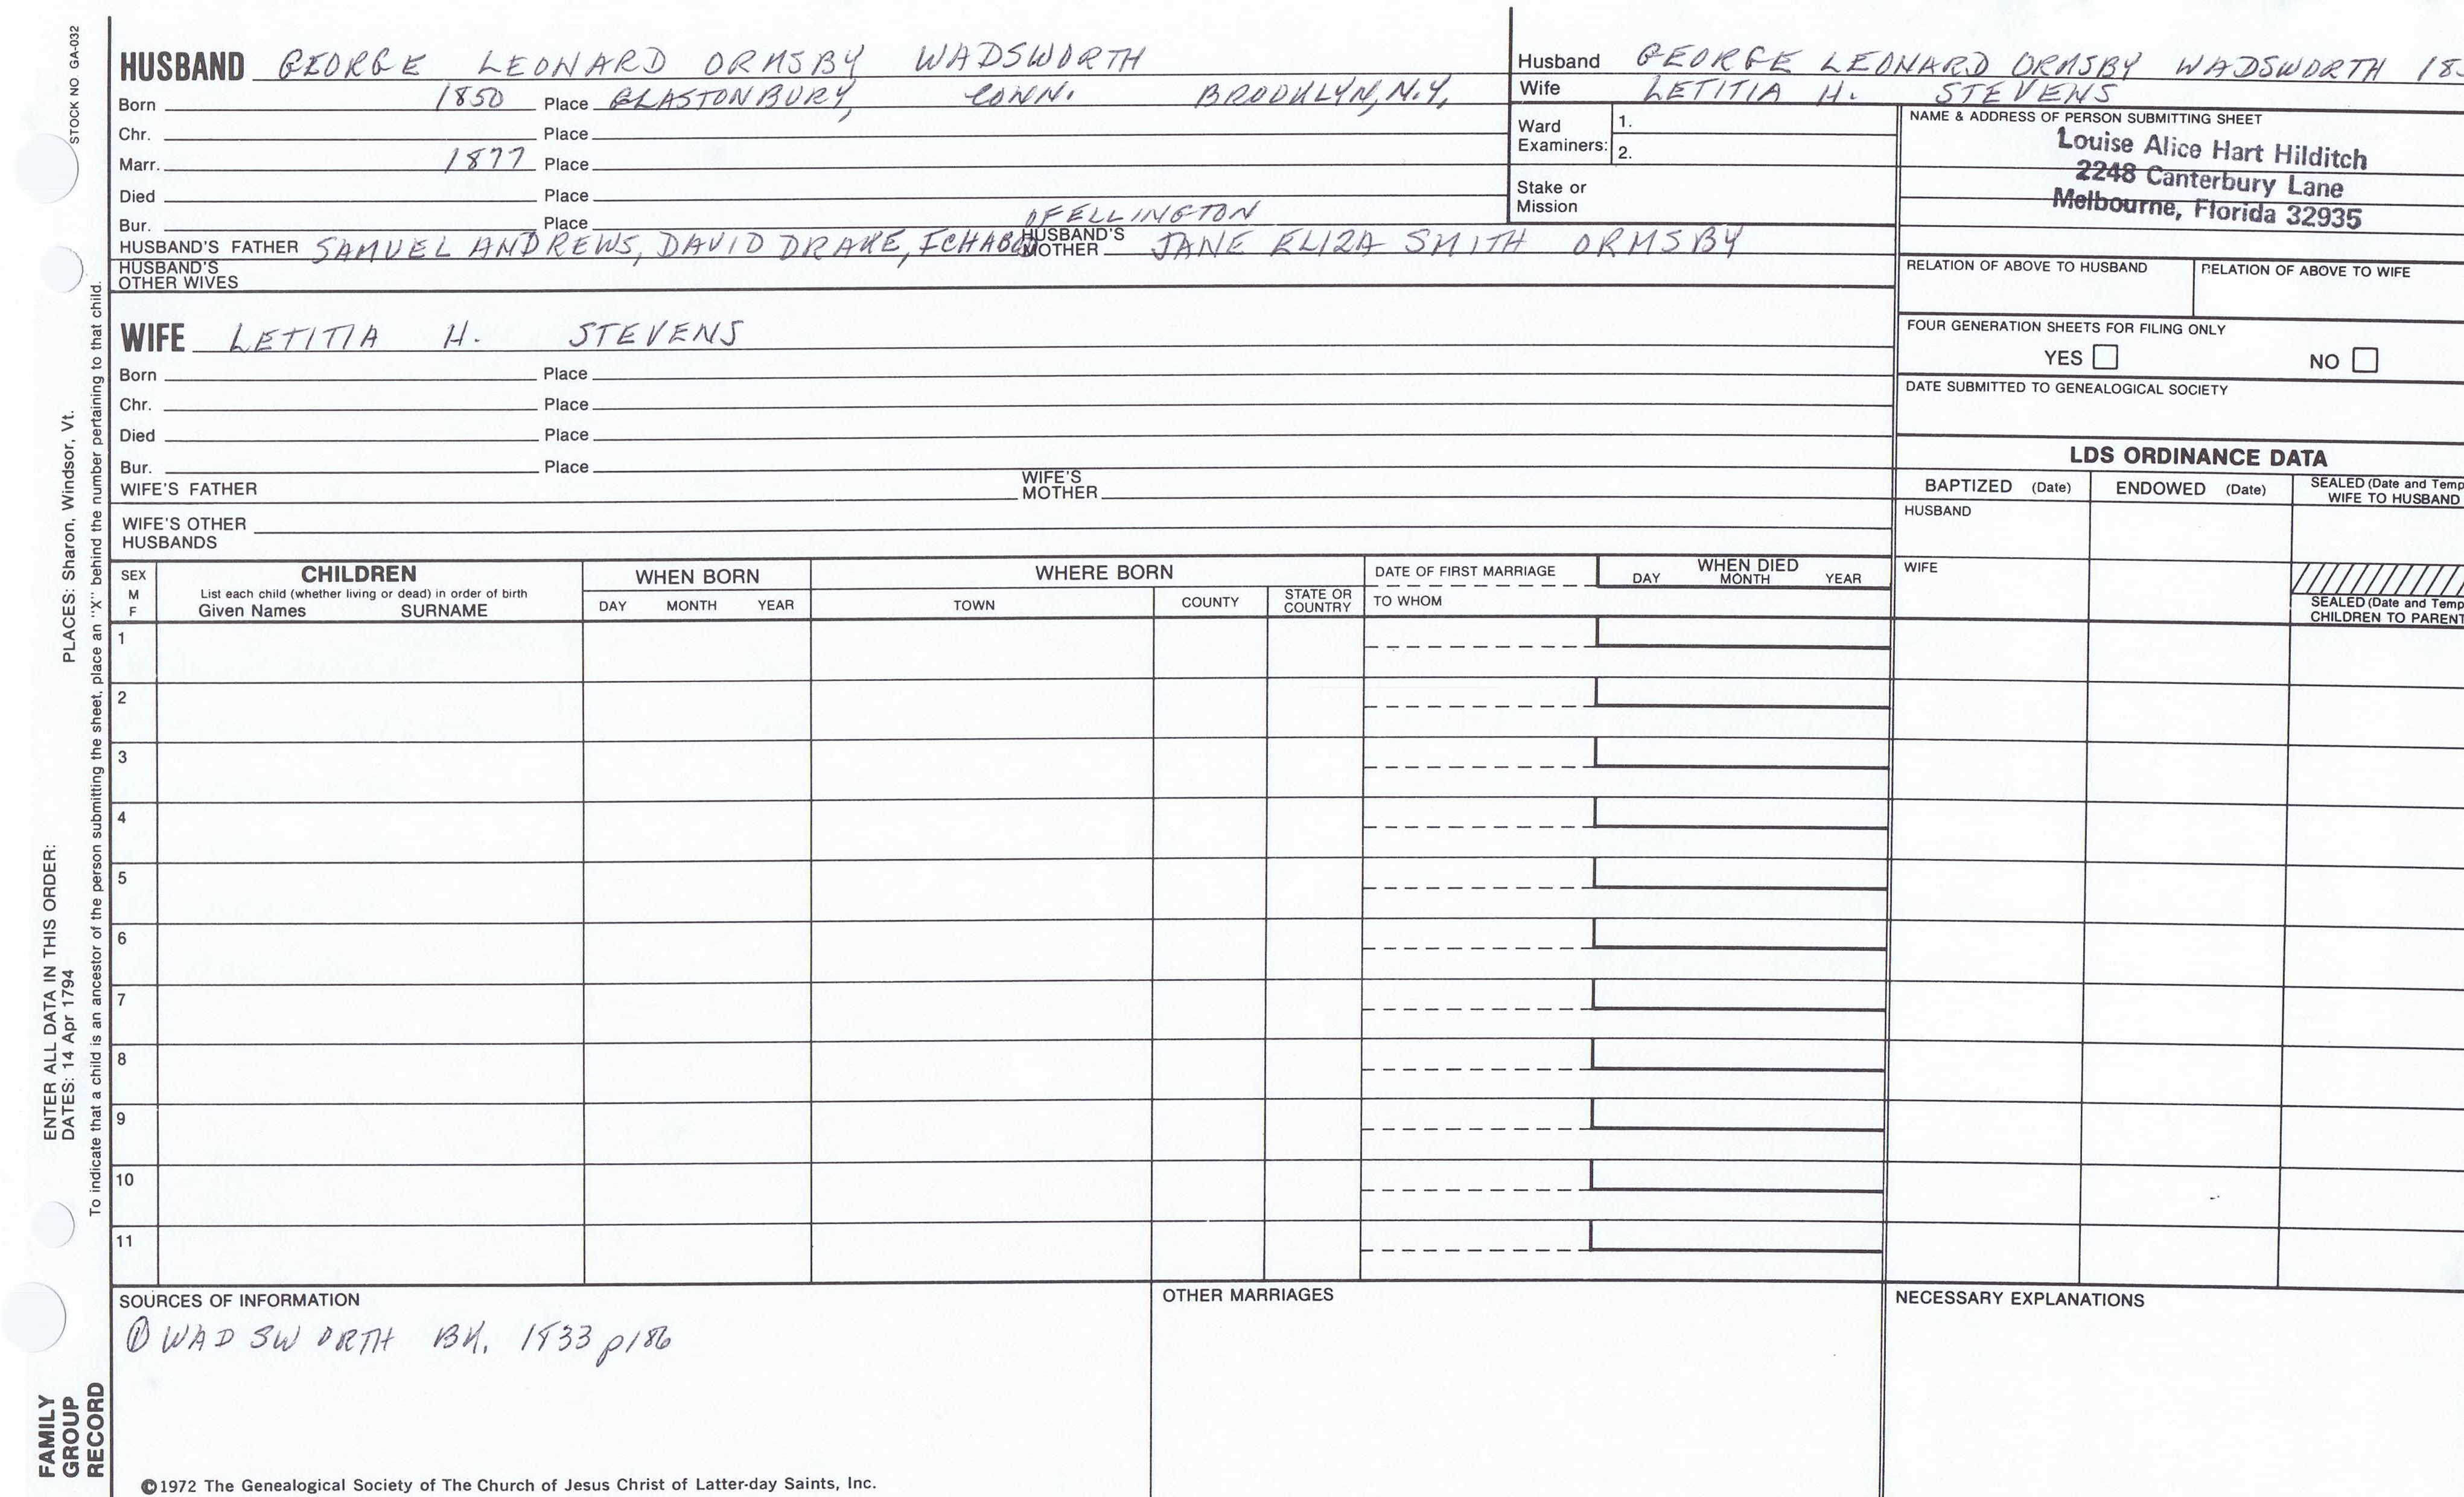 STOCK NO GA-032
HUSBAND GEORGE LEONARD ORMSBY WADSWORTH
Born 1850 Place GLASTONBURY, CONN. BROOKLYN, N.Y.
Chr. Place
Marr. 1877 Place
Died Place
Bur. Place
OF ELLINGTON
HUSBAND'S FATHER SAMUEL ANDREWS, DAVID DRAKE, ICHABOD HUSBAND'S MOTHER JANE ELIZA SMITH ORMSBY
HUSBAND'S OTHER WIVES
WIFE LETITIA H. STEVENS
Born Place
Chr. Place
Died Place
Bur. Place
WIFE'S FATHER WIFE'S MOTHER
WIFE'S OTHER HUSBANDS
Husband GEORGE LEONARD ORMSBY WADSWORTH
Wife LETITIA H. STEVENS
Ward Examiners: 1.
2.
Stake or Mission
NAME & ADDRESS OF PERSON SUBMITTING SHEET
Louise Alice Hart Hilditch
2248 Canterbury Lane
Melbourne, Florida 32935
RELATION OF ABOVE TO HUSBAND RELATION OF ABOVE TO WIFE
FOUR GENERATION SHEETS FOR FILING ONLY
YES NO
DATE SUBMITTED TO GENEALOGICAL SOCIETY
LDS ORDINANCE DATA
BAPTIZED (Date) ENDOWED (Date) SEALED (Date and Temp
WIFE TO HUSBAND
HUSBAND
WIFE
SEALED (Date and Temp
CHILDREN TO PARENT
SEX
M
F
CHILDREN
List each child (whether living or dead) in order of birth
Given Names SURNAME
WHEN BORN
DAY MONTH YEAR
WHERE BORN
TOWN COUNTY STATE OR COUNTRY
DATE OF FIRST MARRIAGE
TO WHOM
WHEN DIED
DAY MONTH YEAR
1
2
3
4
5
6
7
8
9
10
11
SOURCES OF INFORMATION
① WADSWORTH BK. 1833 p186
OTHER MARRIAGES
NECESSARY EXPLANATIONS
©1972 The Genealogical Society of The Church of Jesus Christ of Latter-day Saints, Inc.
ENTER ALL DATA IN THIS ORDER:
DATES: 14 Apr 1794 PLACES: Sharon, Windsor, Vt.
To indicate that a child is an ancestor of the person submitting the sheet, place an "X" behind the number pertaining to that child.
FAMILY
GROUP
RECORD